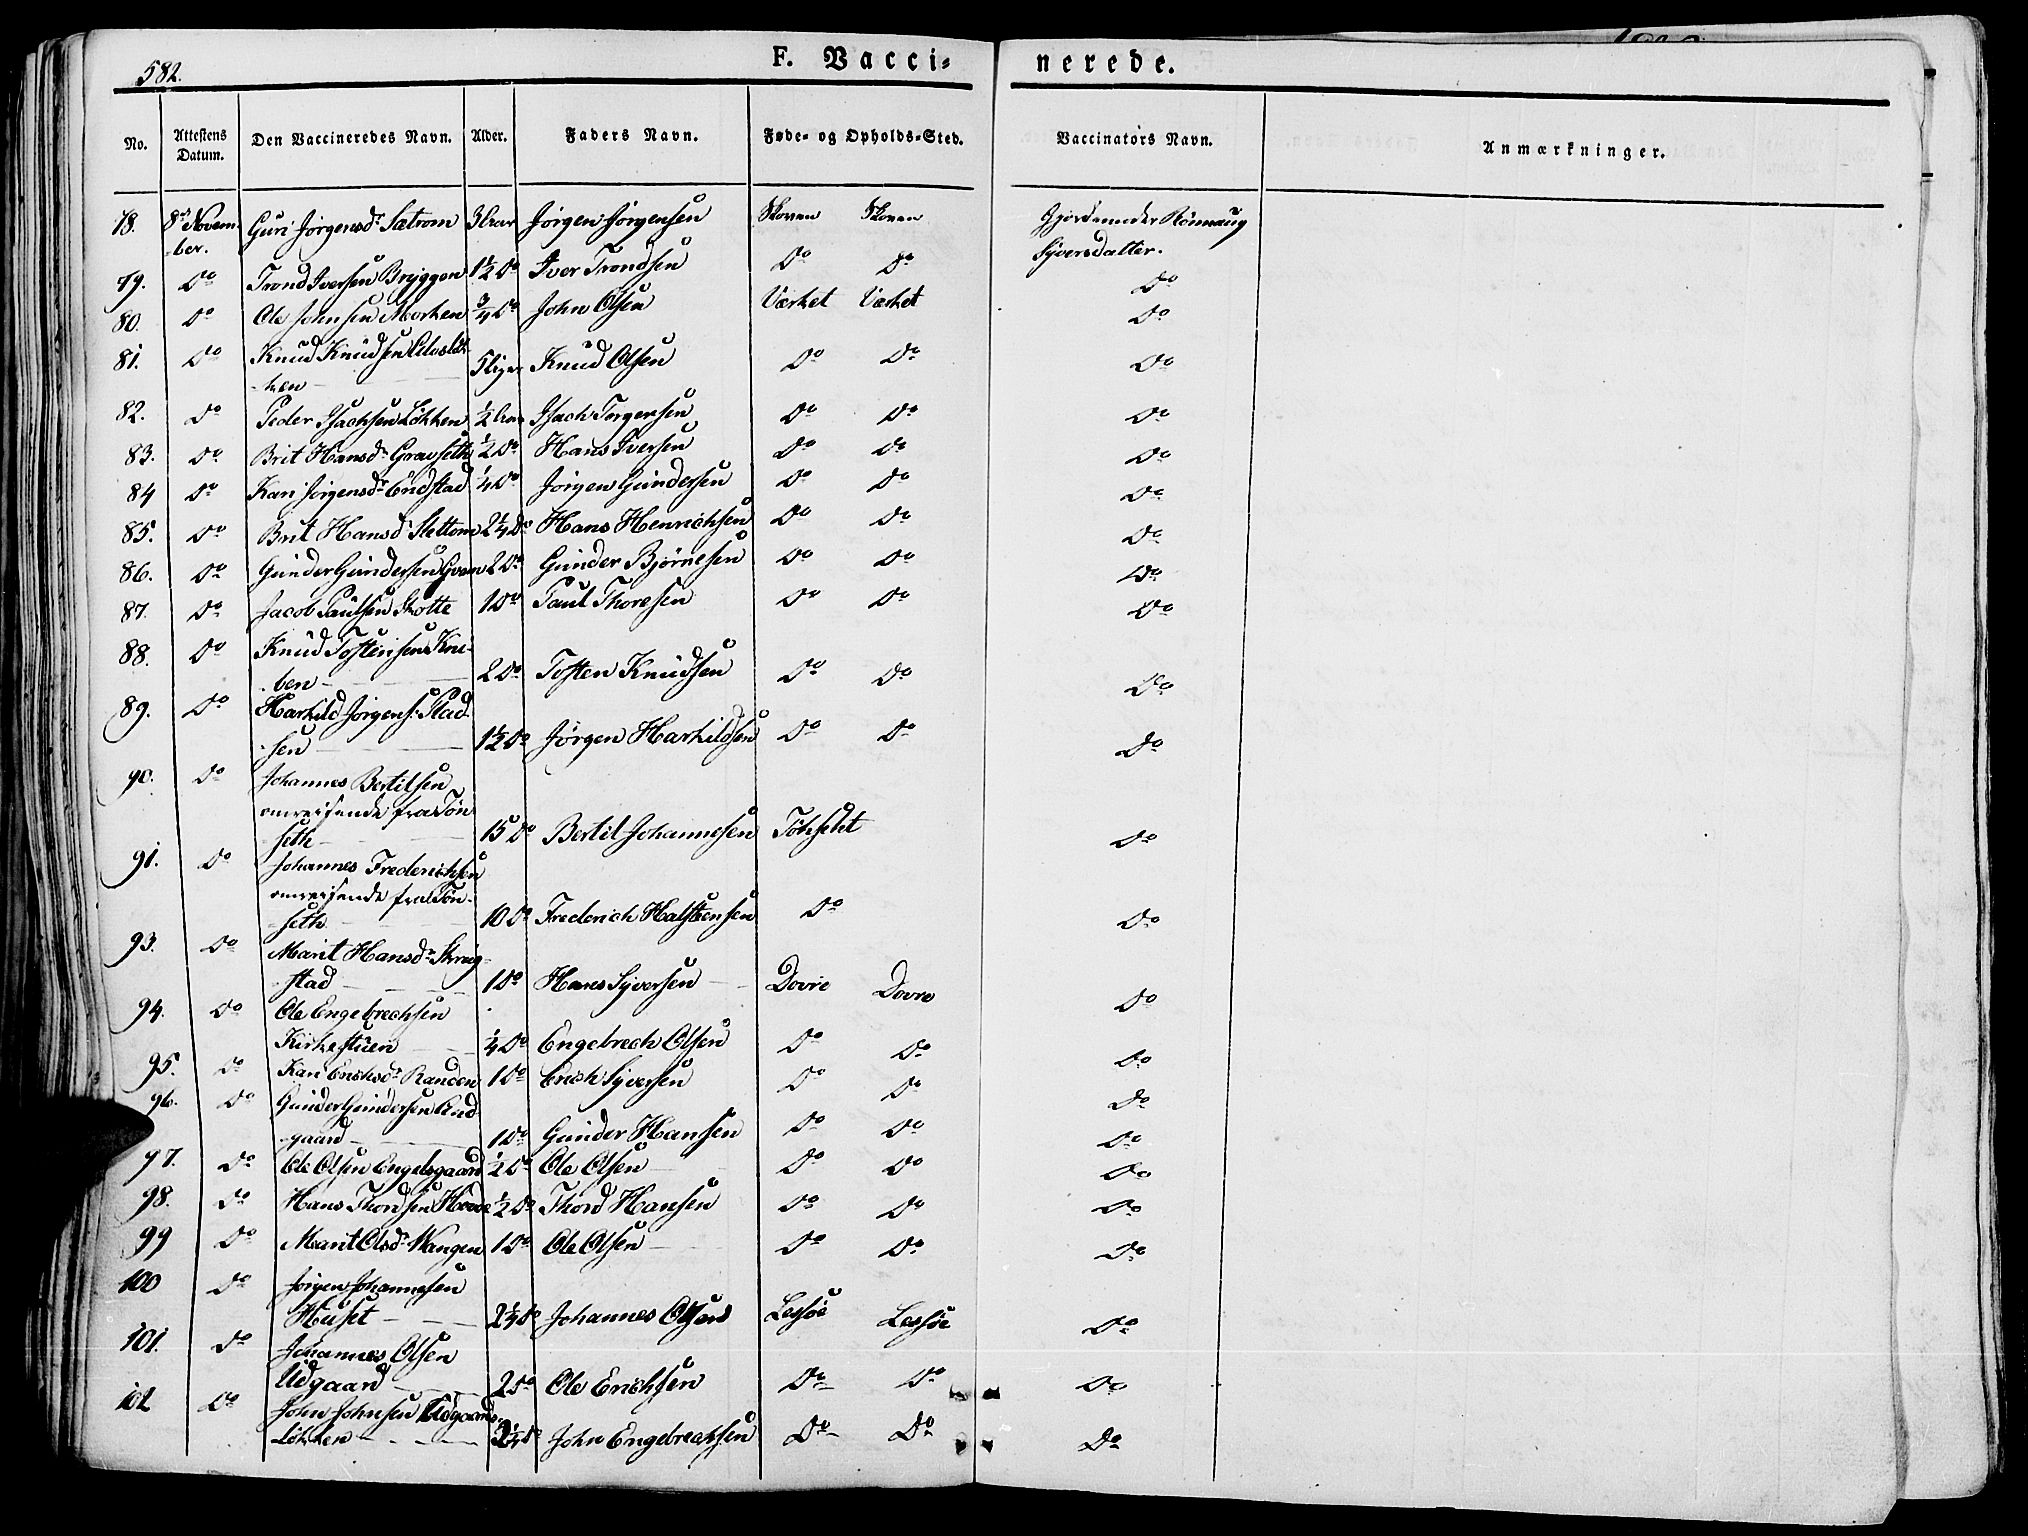 582.
F. Vacci- nerede.
No. Attestens Datum. Den Vaccineredes Navn. Alder. Faders Navn. Føde- og Opholds-Sted. Vaccinatørs Navn. Anmærkninger.
78. 8de Novem- Guri Jørgensdr Sætrom 3 Aar Jørgen Jørgensen Skoven Skoven Gjordemoder Rönnaug
ber. Syversdatter.
79. Do Trond Iversen Bryggen 1½ Do Iver Trondsen Do Do Do
80. Do Ole Johnsen Morken ¾ Do John Olsen Værket Værket Do
81. Do Knud Knudsen
ken 5 Uger Knud Olsen Do Do Do
82. Do Peder Isachsen Løkken ½ Aar Isach Torgersen Do Do Do
83. Do Brit Hansdr Gravseth ½ Do Hans Iversen Do Do Do
84 Do Kari Jørgensdr Endstad ¼ Do Jørgen Gundersen Do Do Do
85. Do Brit Hansd Slettom 2¼ Do Hans Henrichsen Do Do Do
86. Do Gunder Gundersen 2 Do Gunder Bjørnesen Do Do Do
87. Do Jacob Paulsen Skotte 1 Do Paul Thoresen Do Do Do
88. Do Knud Tostensen Kni-
ben - 2 Do Tosten Knudsen Do Do Do
89. Do Harkild Jørgens: Stad-
sen 1½ Do Jørgen Harkildsen Do Do Do
90. Do Johannes Bertilsen
omreisende fra Tøn-
seth - 15 Do Bertil Johannesen Tønseht Do
91. Do Johannes Frederichsen
omreisende fra Tøn-
seth 10 Do Frederich Halsteensen Do Do
93. Do Marit Hansdr
stad 1 Do Hans Syversen Dovre Dovre Do
94. Do Ole Engebrechsen
Kirkestuen ¼ Do Engebrech Olsen Do Do Do
95. Do Kari Erichsdr Randen 1 Do Erich Syversen Do Do Do
96. Do Gunder Gundersen
gaard 1 Do Gunder Hansen Do Do Do
97. Do Ole Olsen Engelsgaard ½ Do Ole Olsen Do Do Do
98. Do Hans Thordsen ½ Do Thord Hansen Do Do Do
99 Do Marit Olsdr Wangen 1 Do Ole Olsen Do Do Do
100 Do Jørgen Johannesen
Huset 2¼ Do Johannes Olsen Lessøe Lessøe Do
101. Do Johannes Olsen
Udgaard 2 Do Ole Erichsen Do Do Do
102 Do John Johnsen Udgaards-
Løkken 3¼ Do John Engebrechsen Do Do Do